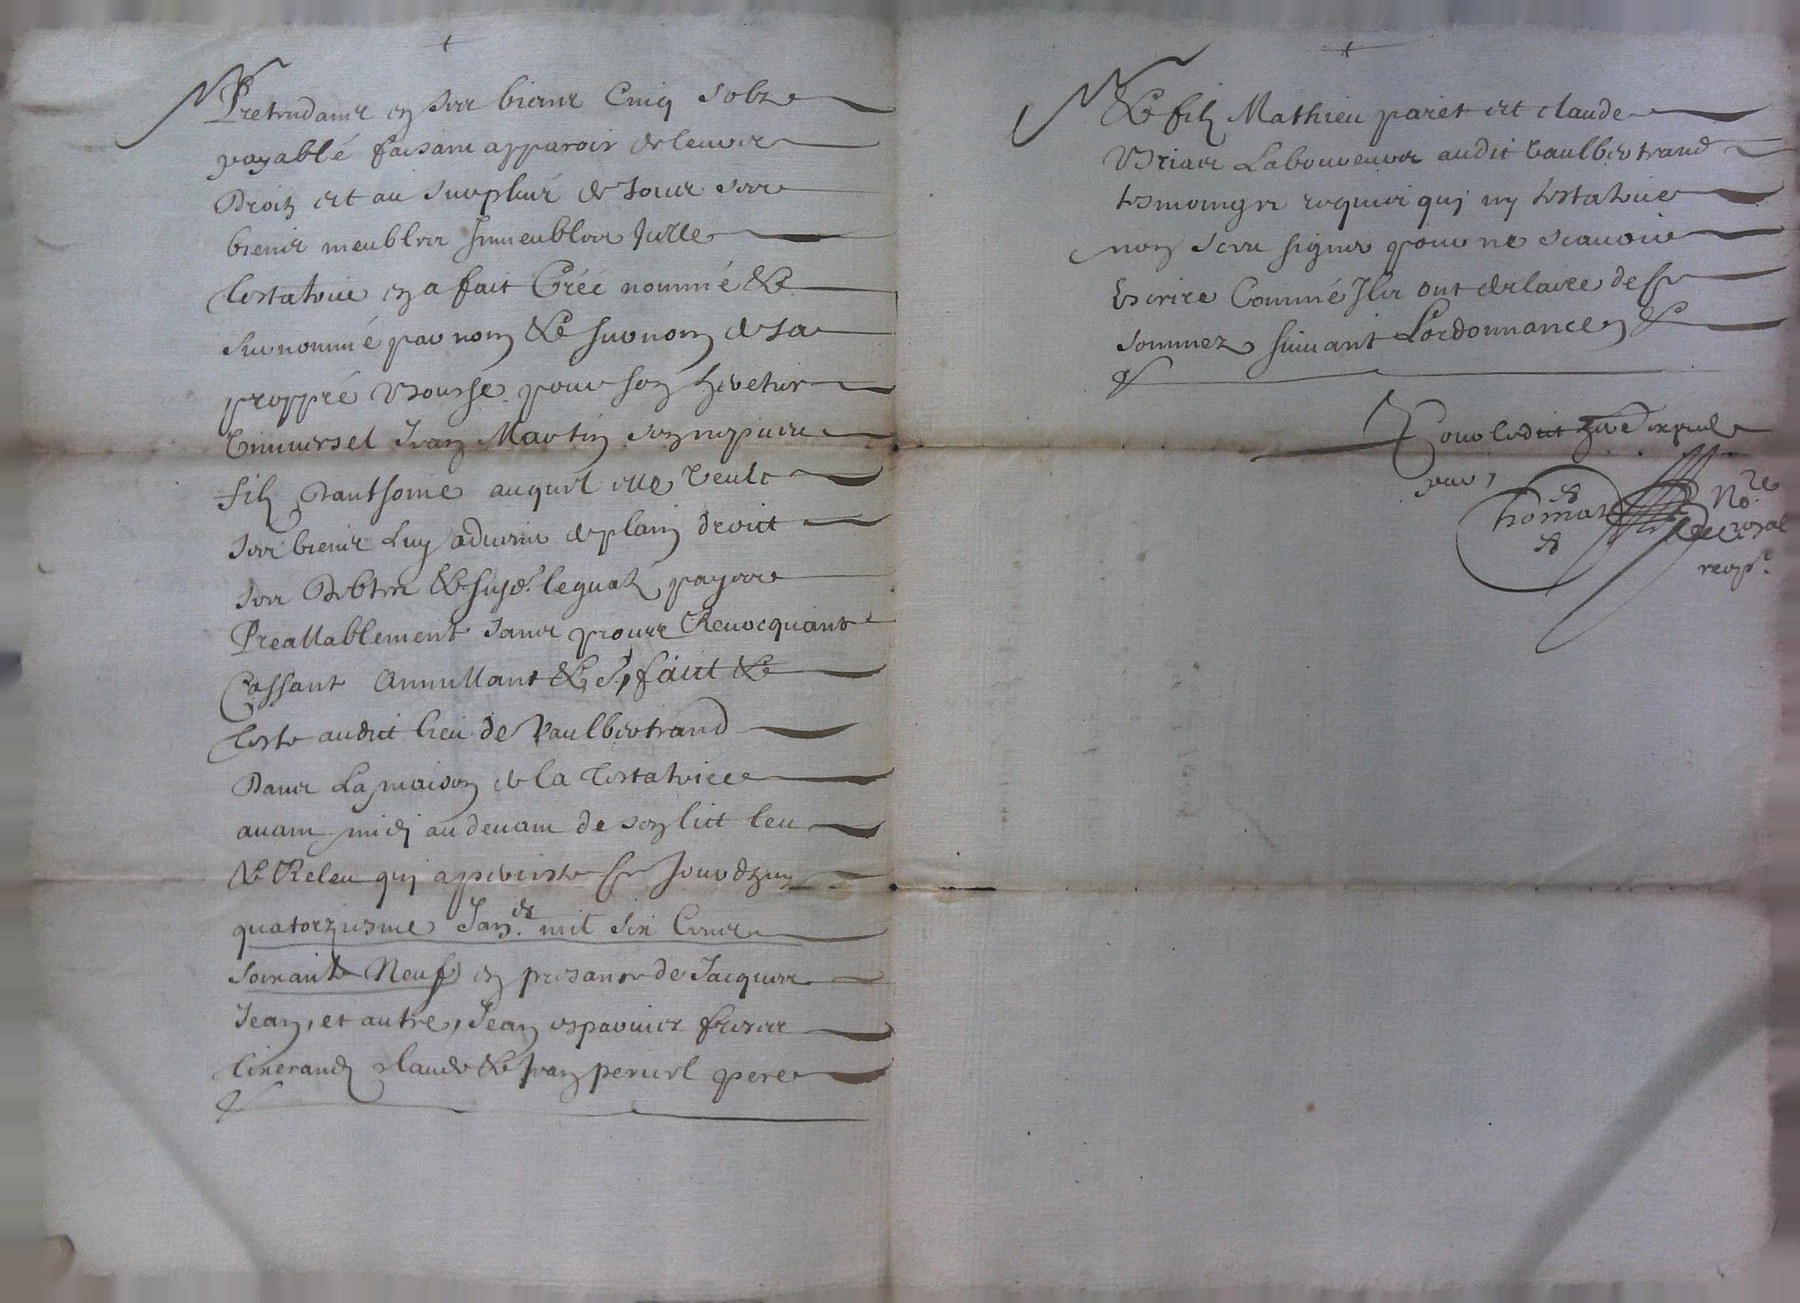 Pretendans en ses biens Cinq solz
payable faisant apparoir de leurs
Droitz et au surplus de tous ses
biens meubles Immeubles Icelle
testatrice en a fait Créé nommé &
surnommé par nom & surnom de sa
propre bouche pour son heretier
Universel Jean Martin son nepueu
filz Danthoine auquel elle veult
ses biens Luy advenir de plain droict
ses Debtes & susd. legualz payes
Preallablement sans proces Revocquant
Cassant Annullant &c faict &
teste audict lieu de Vaulbertrand
Dans La maison de la Testatrice
avant midi au devant de son lict leu
& Releu qui a perciste ce Jourdhuy
quatorziesme Jan.er mil six Cens
soixante Neuf en presance de Jacques
Jean, et autre, Jean esparvier freres
tixerandz Claude & Jean peruel pere
& filz Mathieu paret et claude
Briaes Laboureurs audit Vaulbertrand
tesmoingz requis qui ny testatrice
nont sceu signer pour ne scavoir
Escrire Comme Ilz ont declaire de ce
sommez suivant Lordonnance &
Pour ledict
par,
Thomas
No.re
royal